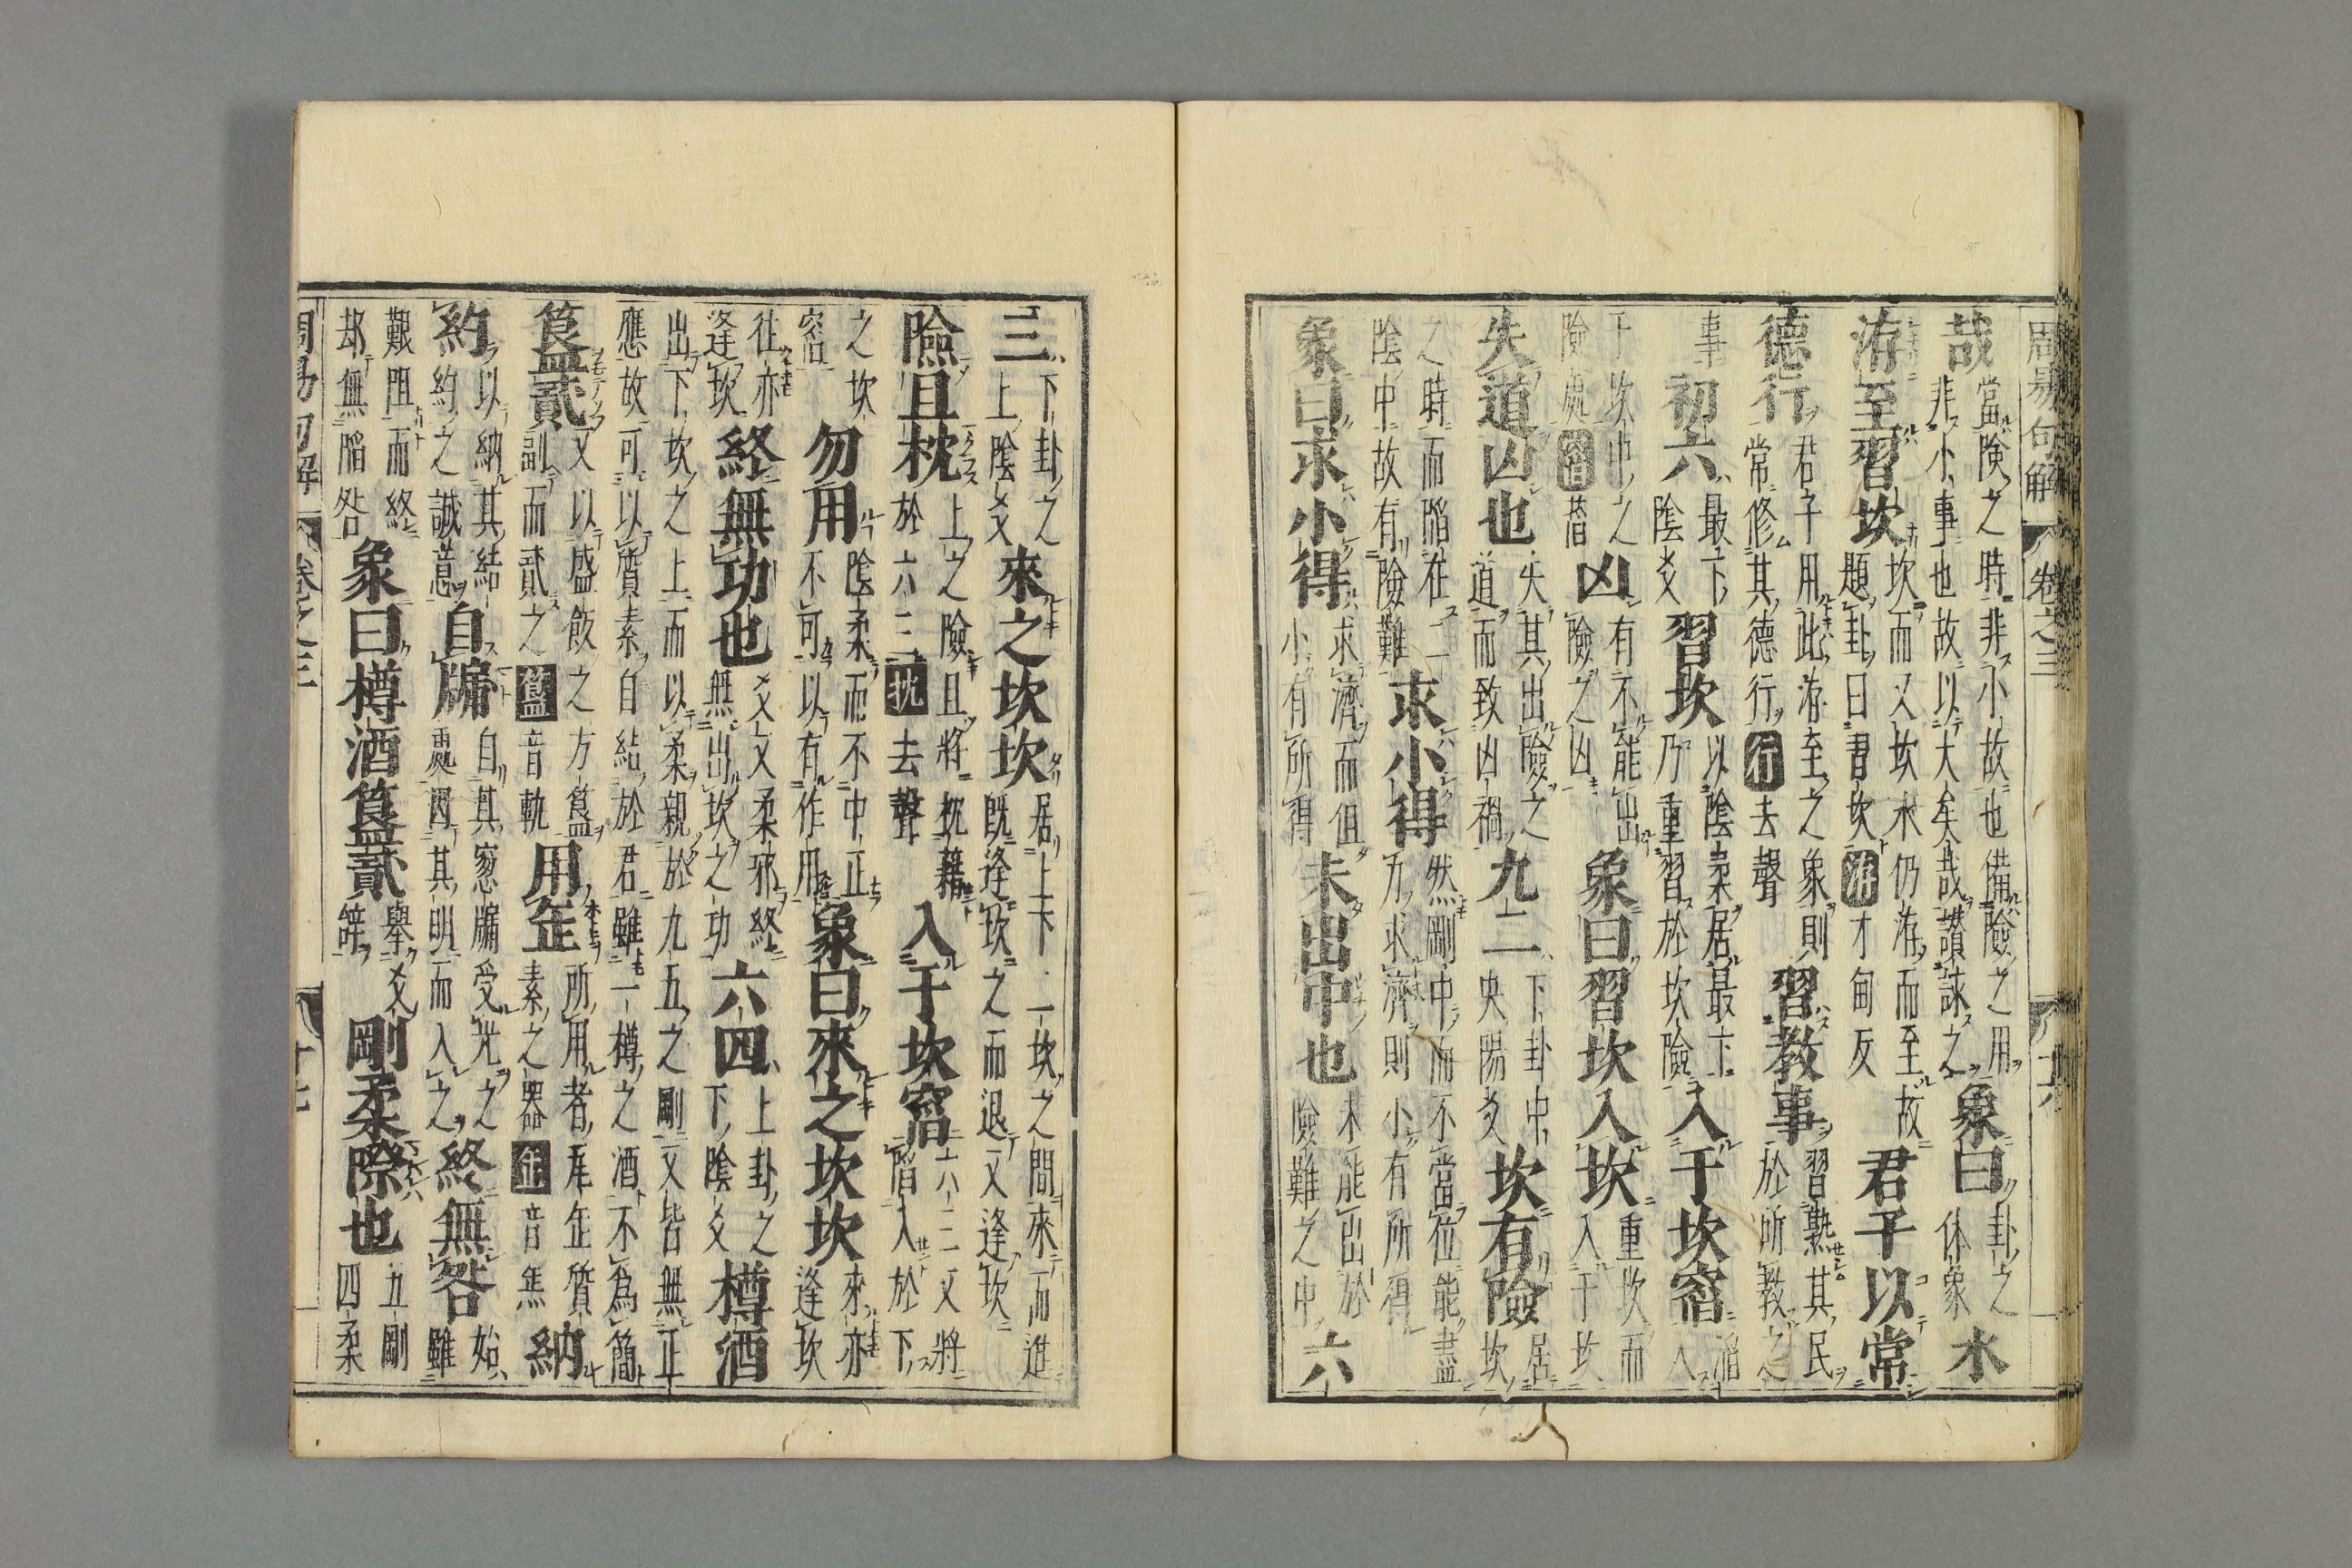 周易句解 卷之三 十六
哉當險之時非小故也備險之用非小事也故以大矣哉讃詠之象曰卦之体象水
洊至習坎坎而又坎水仍洊而至故題卦曰習坎洊才甸反君子以常
德行君子用此洊至之象則常修其德行行去聲習教事習熟其民於所教之
事初六最下陰爻習坎以陰柔居最下乃重習於坎險入于坎窞滔入
于坎中之險處窞萏凶有不能出險之凶象曰習坎入坎重坎而入于坎
失道凶也失其出險之道而致凶禍九二下卦中央陽爻坎有險居坎
之時而陷在二陰中故有險難求小得然剛中而不當位能盡力求濟則小有所得
象曰求小得求濟而但小有所得未出中也未能出於險難之中六
三下卦之上陰爻來之坎坎居上下二坎之間來而進既逢坎之而退又逢坎
險且枕上之險且將枕藉於六三枕去聲入于坎窞六三又將陷入於下
之坎窞勿用陰柔而不中正不可以有作用象曰來之坎坎來亦逢坎
往亦逢坎終無功也爻又柔邪終無出坎之功六四上卦之下陰爻樽酒
出下坎之上而以柔親於九五之剛又皆無正應故可以質素自結於君雖一樽之酒不為簡
簋貳又以盛飯之方簋副而貳之簋音軌用缶所用者瓦缶質素之器缶音缹納
約以納其結約之誠意自牖自其窓牖受光之處因其明而入之終無咎始雖
艱阻而終却無陥咎象曰樽酒簋貳舉爻辭剛柔際也五剛四柔
周易句解 卷之三 十七